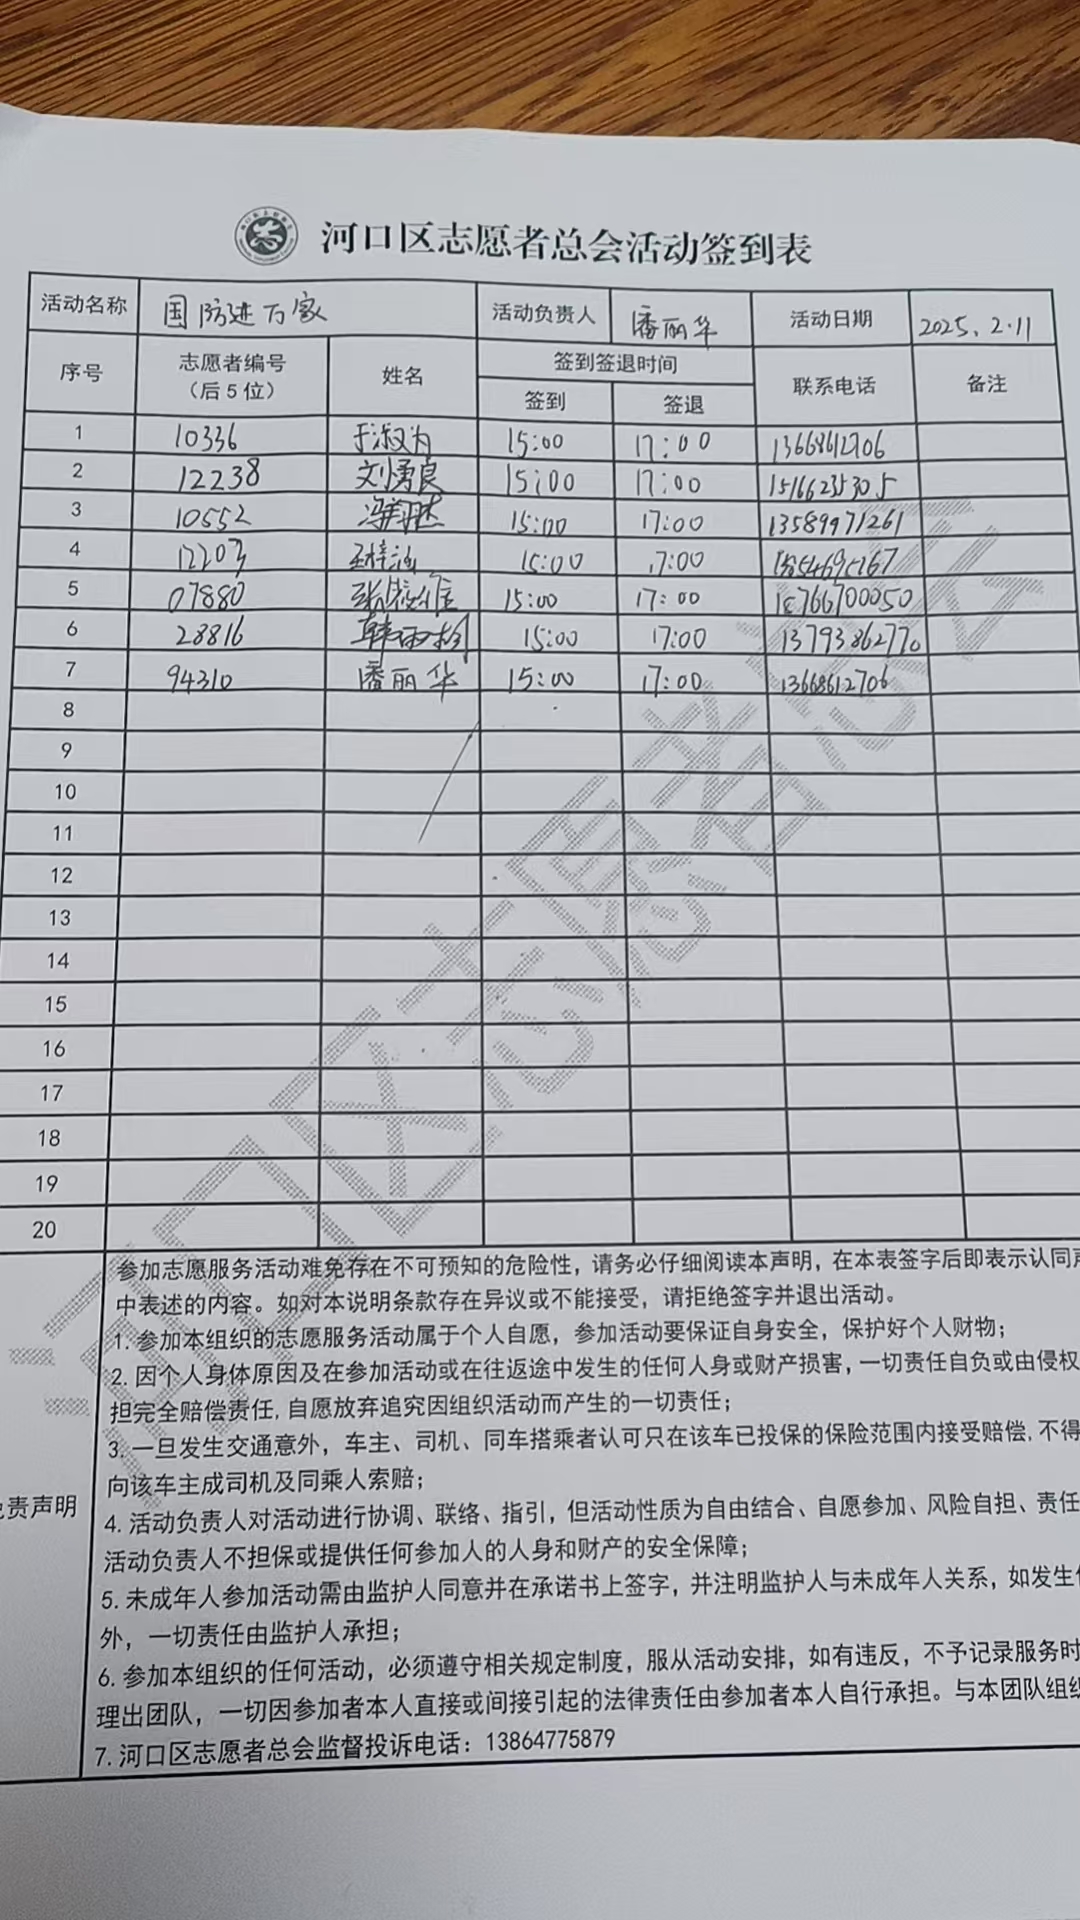 河口区志愿者总会活动签到表
活动名称 国防进万家 活动负责人 潘丽华 活动日期 2025.2.11
序号 志愿者编号（后5位） 姓名 签到签退时间 联系电话 备注
签到 签退
1 10336 于淑为 15:00 17:00 13668612706
2 12238 刘勇良 15:00 17:00 15166235305
3 10552 冯翔杰 15:00 17:00 13589971261
4 12203 15:00 17:00
5 07880 15:00 17:00 15766700050
6 28816 韩雨彤 15:00 17:00 13793862770
7 94310 潘丽华 15:00 17:00 13668612706
8
9
10
11
12
13
14
15
16
17
18
19
20
参加志愿服务活动难免存在不可预知的危险性，请务必仔细阅读本声明，在本表签字后即表示认同声
中表述的内容。如对本说明条款存在异议或不能接受，请拒绝签字并退出活动。
1. 参加本组织的志愿服务活动属于个人自愿，参加活动要保证自身安全，保护好个人财物；
2. 因个人身体原因及在参加活动或在往返途中发生的任何人身或财产损害，一切责任自负或由侵权
担完全赔偿责任，自愿放弃追究因组织活动而产生的一切责任；
3. 一旦发生交通意外，车主、司机、同车搭乘者认可只在该车已投保的保险范围内接受赔偿，不得
向该车主成司机及同乘人索赔；
责声明
4. 活动负责人对活动进行协调、联络、指引，但活动性质为自由结合、自愿参加、风险自担、责任
活动负责人不担保或提供任何参加人的人身和财产的安全保障；
5. 未成年人参加活动需由监护人同意并在承诺书上签字，并注明监护人与未成年人关系，如发生
外，一切责任由监护人承担；
6. 参加本组织的任何活动，必须遵守相关规定制度，服从活动安排，如有违反，不予记录服务时
理出团队，一切因参加者本人直接或间接引起的法律责任由参加者本人自行承担。与本团队组织
7. 河口区志愿者总会监督投诉电话：13864775879
河口区志愿者总会